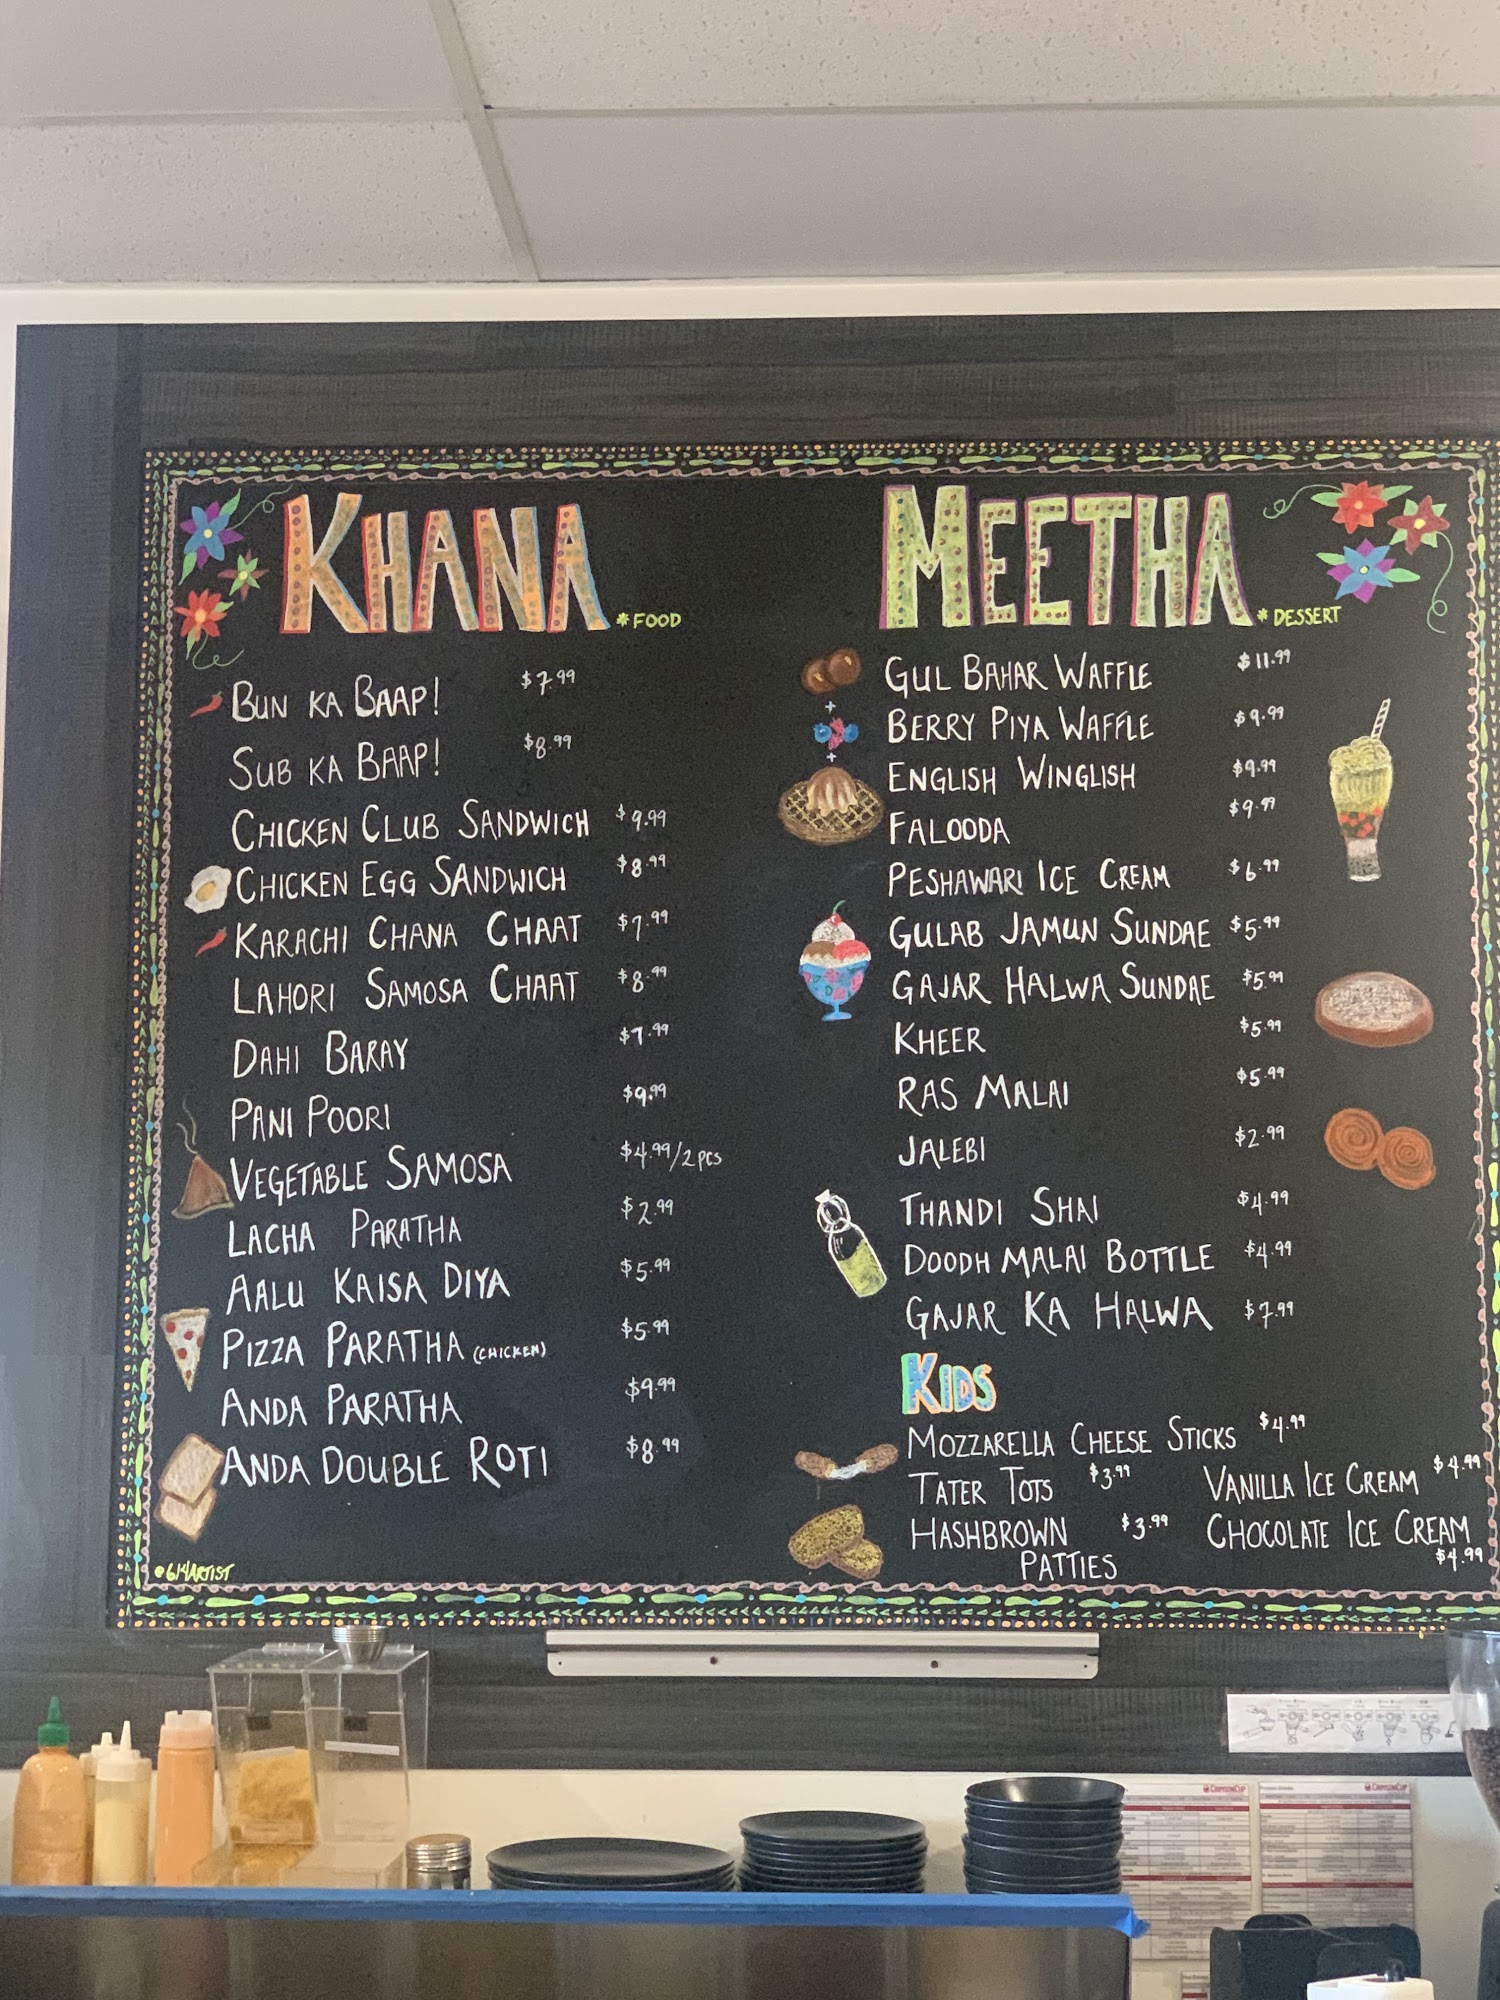 KHANA *FOOD
BUN KA BAAP! $7.99
SUB KA BAAP! $8.99
CHICKEN CLUB SANDWICH $9.99
CHICKEN EGG SANDWICH $8.99
KARACHI CHANA CHAAT $7.99
LAHORI SAMOSA CHAAT $8.99
DAHI BARAY $7.99
PANI POORI $9.99
VEGETABLE SAMOSA $4.99/2 PCS
LACHA PARATHA $2.99
AALU KAISA DIYA $5.99
PIZZA PARATHA (CHICKEN) $5.99
ANDA PARATHA $9.99
ANDA DOUBLE ROTI $8.99
@614ARTIST
MEETHA *DESSERT
GUL BAHAR WAFFLE $11.99
BERRY PIYA WAFFLE $9.99
ENGLISH WINGLISH $9.99
FALOODA $9.99
PESHAWARI ICE CREAM $6.99
GULAB JAMUN SUNDAE $5.99
GAJAR HALWA SUNDAE $5.99
KHEER $5.99
RAS MALAI $5.99
JALEBI $2.99
THANDI SHAI $4.99
DOODH MALAI BOTTLE $4.99
GAJAR KA HALWA $7.99
KIDS
MOZZARELLA CHEESE STICKS $4.99
TATER TOTS $3.99 VANILLA ICE CREAM $4.99
HASHBROWN $3.99 CHOCOLATE ICE CREAM
PATTIES $4.99
CRIMSON CUP
CRIMSON CUP